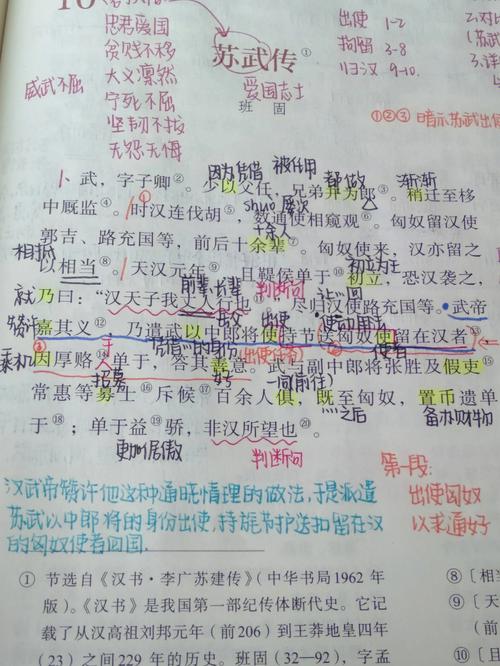 10
忠君爱国
贫贱不移
大义凛然
宁死不屈
坚韧不拔
无怨无悔
威武不屈
苏武传①
爱国志士
班固
出使 1-2
拘留 3-8
归汉 9-10.
①②③ 暗示苏武出使
因为 凭借 被任用 都做 渐渐
武，字子卿②。少以父任，兄弟并为郎③。稍迁至移
shuò 屡次
中厩监④。时汉连伐胡⑤，数通使相窥观⑥。匈奴留汉使
十余人
郭吉、路充国等，前后十余辈⑦。匈奴使来，汉亦留之
相抵 初立为王
以相当⑧。天汉元年⑨，且鞮侯单于⑩初立，恐汉袭之，
就 前辈 长辈 判断句
乃曰：“汉天子我丈人行也⑪。”尽归汉使路充国等。武帝
赞许 出使 使动用法
嘉其义⑫，乃遣武以中郎将使持节送匈奴使留在汉者⑬，
乘机 凭借…的身份 出使 使者
因厚赂⑭单于，答其善意。武与副中郎将张胜及假吏⑮
招募 一同前往
常惠等募士⑯斥候⑰百余人俱，既至匈奴，置币遗单
…之后 备办财物
于⑱；单于益⑲骄，非汉所望也⑳。
更加倨傲
判断句
汉武帝赞许他这种通晓情理的做法，于是派遣
苏武以中郎将的身份出使，持旄节护送扣留在汉
的匈奴使者回国.
第一段：
出使匈奴
以求通好
① 节选自《汉书·李广苏建传》（中华书局1962年
版）。《汉书》是我国第一部纪传体断代史。它记
载了从汉高祖刘邦元年（前206）到王莽地皇四年
（23）之间229年的历史。班固（32—92），字孟
⑧〔相
⑨〔天
⑩〔且